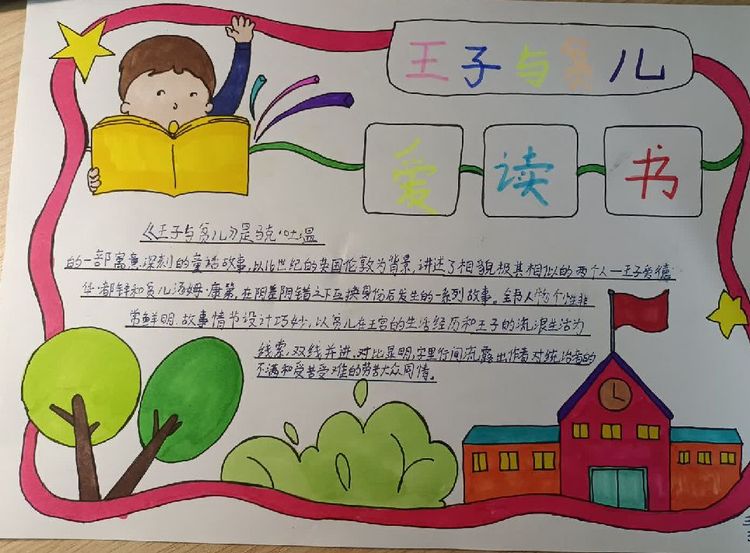 王子与贫儿
爱读书
《王子与贫儿》是马克·吐温
的一部寓意深刻的童话故事,以16世纪的英国伦敦为背景,讲述了相貌极其相似的两个人一王子爱德
华·都铎和贫儿汤姆·康第,在阴差阳错之下互换身份后发生的一系列故事。全书人物个性非
常鲜明.故事情节设计巧妙,以贫儿在王宫的生活经历和王子的流浪生活为
线索,双线并进,对比显明,字里行间流露出作者对统治者的
不满和受苦受难的劳苦大众同情。